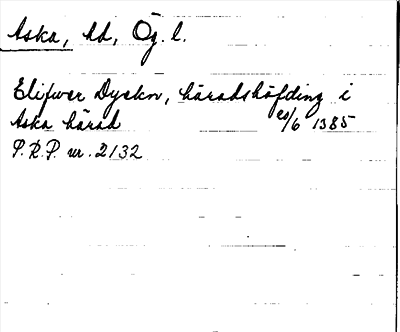 Aska, hd, Ög. l.
Elifwer Dyekn, häradshöfding i
Aska härad 20/6 1385
P.R.P. nr. 2132